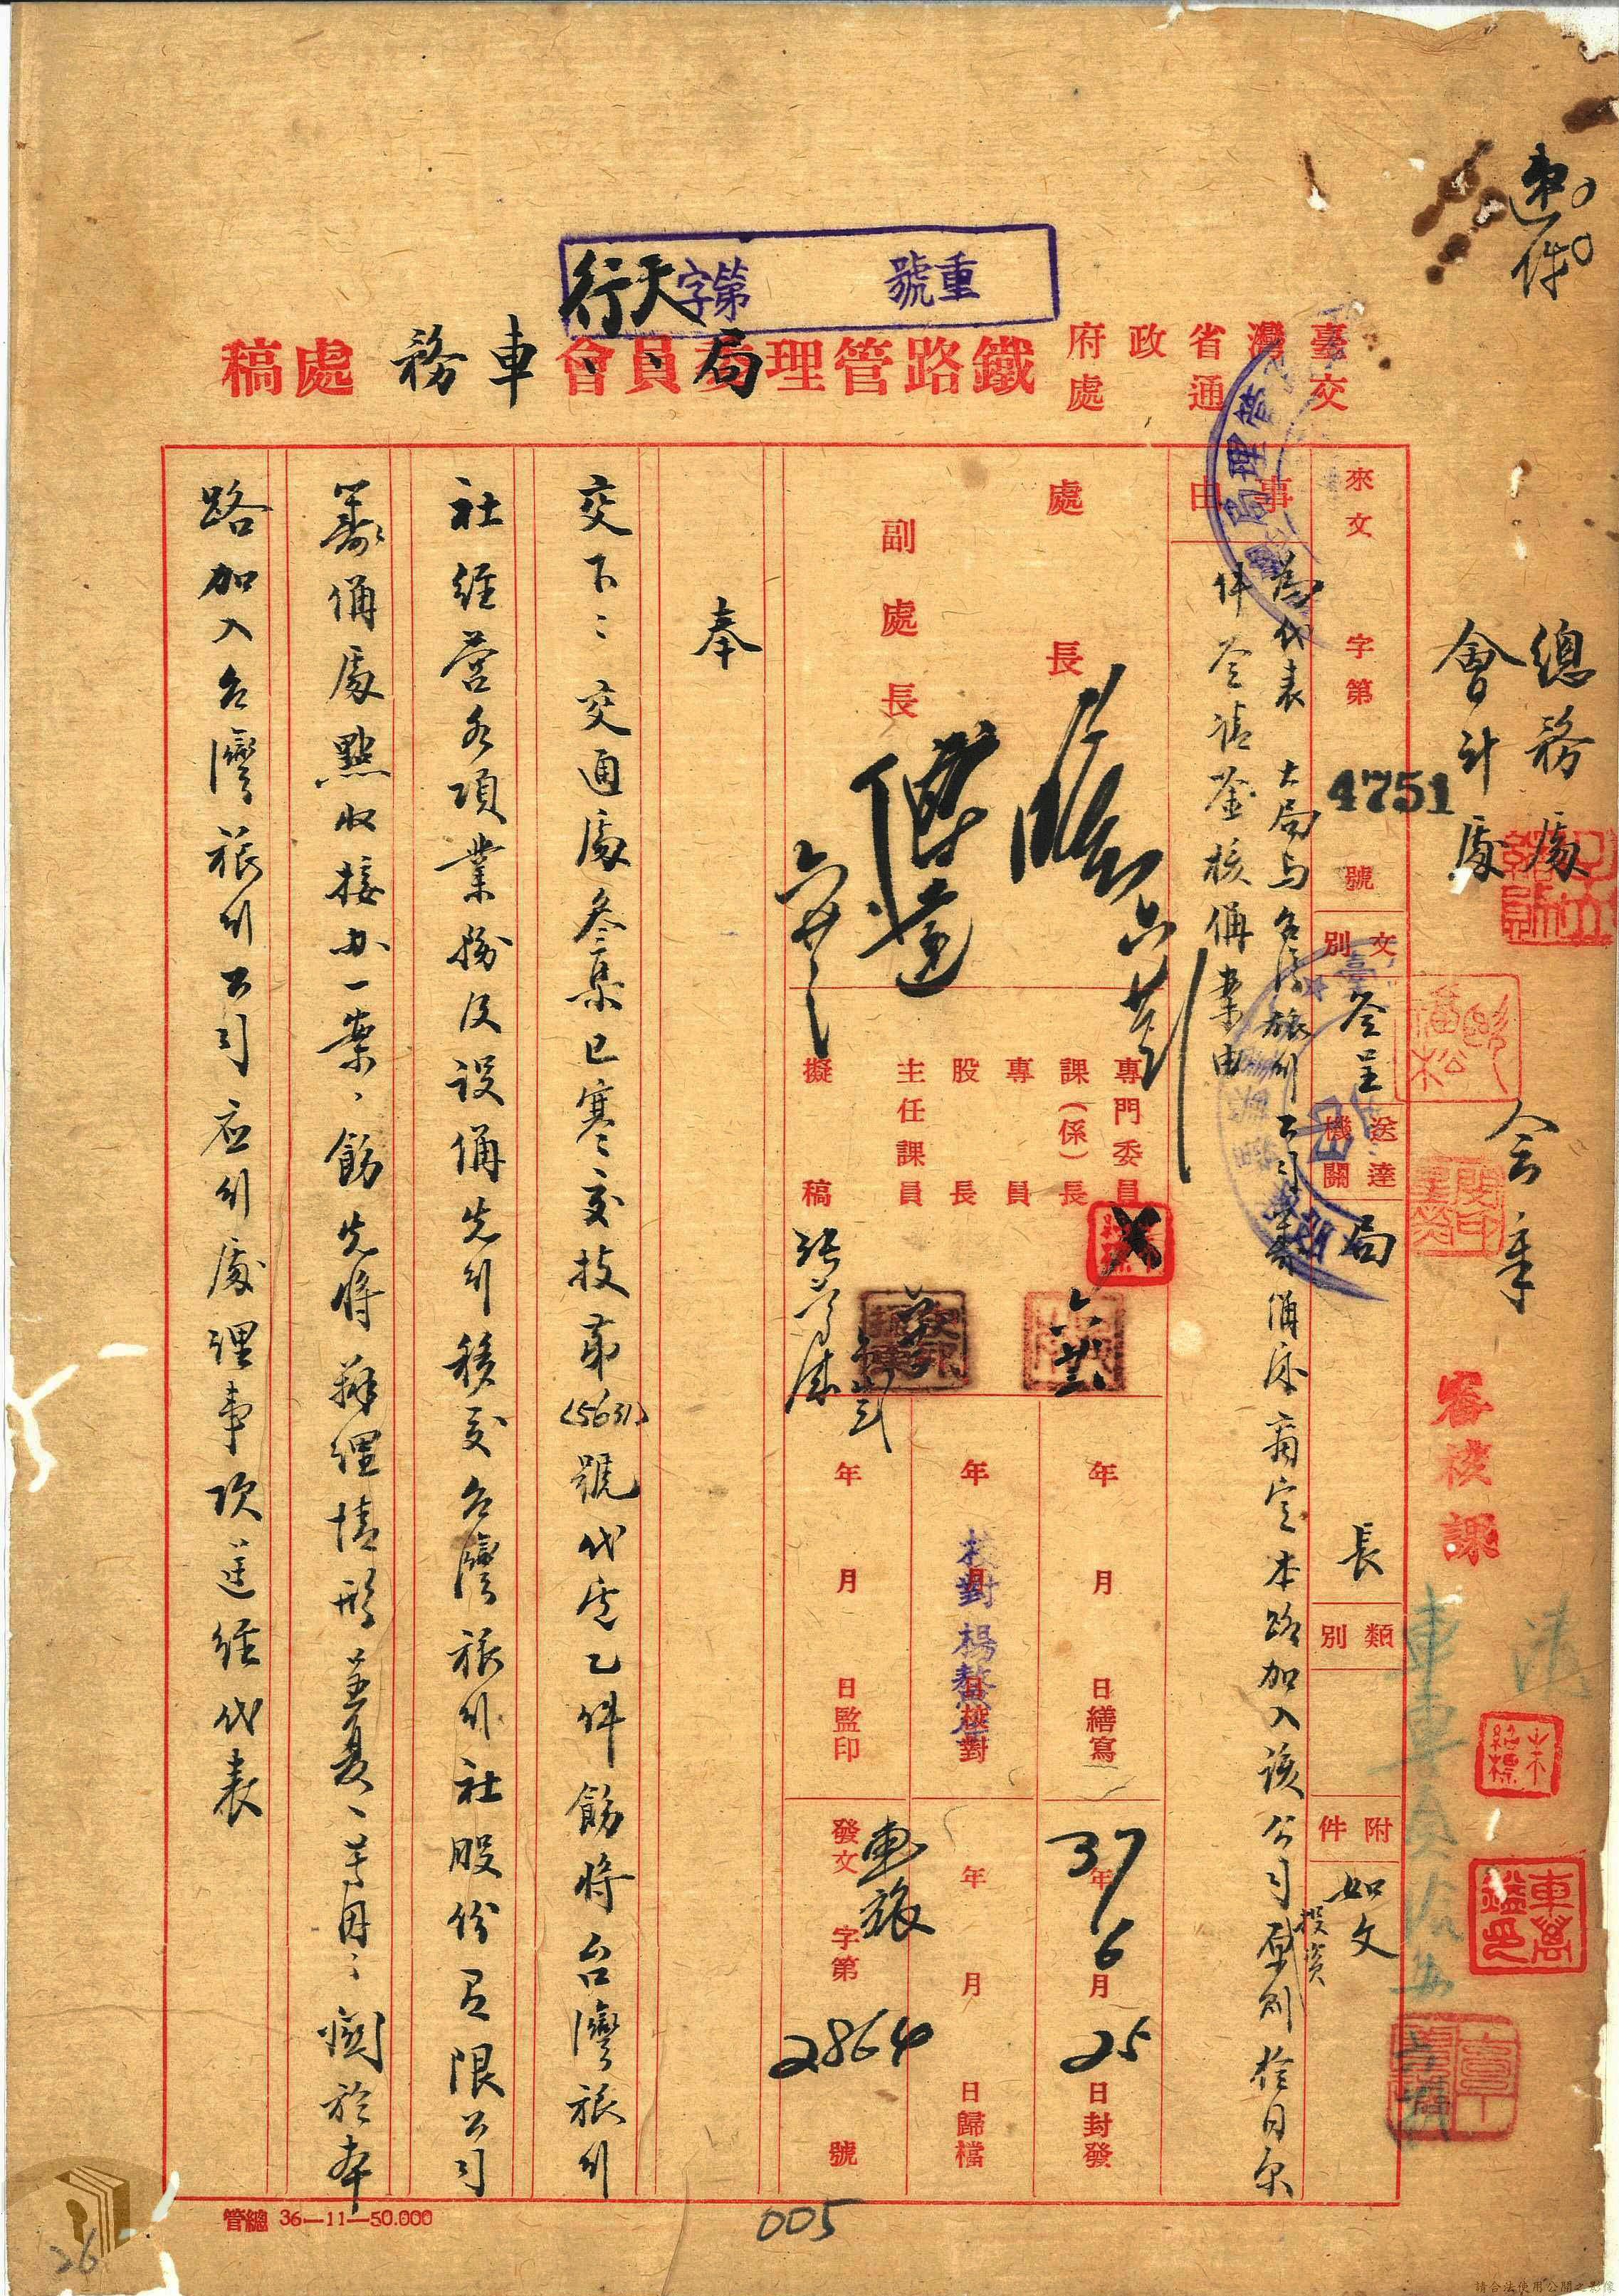 速件
第 字 重號
天行
臺灣省政府
交通處
鐵路管理委員會局車務處稿
總務處
會計處
會章
審核課
來文 字第 4751 號
文別 簽呈
送達機關 局長
類別
附件 如文
事由
為代表 大局与台灣旅行公司籌備處商定本路加入該公司投資原則檢同原
件簽請鑒核備案由
處長
副處長
專門委員
課(係)長
專員
股長
主任課員
擬稿
年 月 日繕寫
年 月 日校對
校對 楊
年 月 日監印
37年6月25日封發
年 月 日歸檔
發文 車旅 字第 2864 號
奉
交下:交通處叁集已寒交技第(5631)號代電乙件飭將台灣旅行
社經營各項業務及設備先行移交台灣旅行社股份有限公司
籌備處點收接办一案,飭先將辦理情形並复、等因;關於本
路加入台灣旅行公司应行處理事項送經代表
管總 36—11—50.000
005
26
請合法使用公開之影像